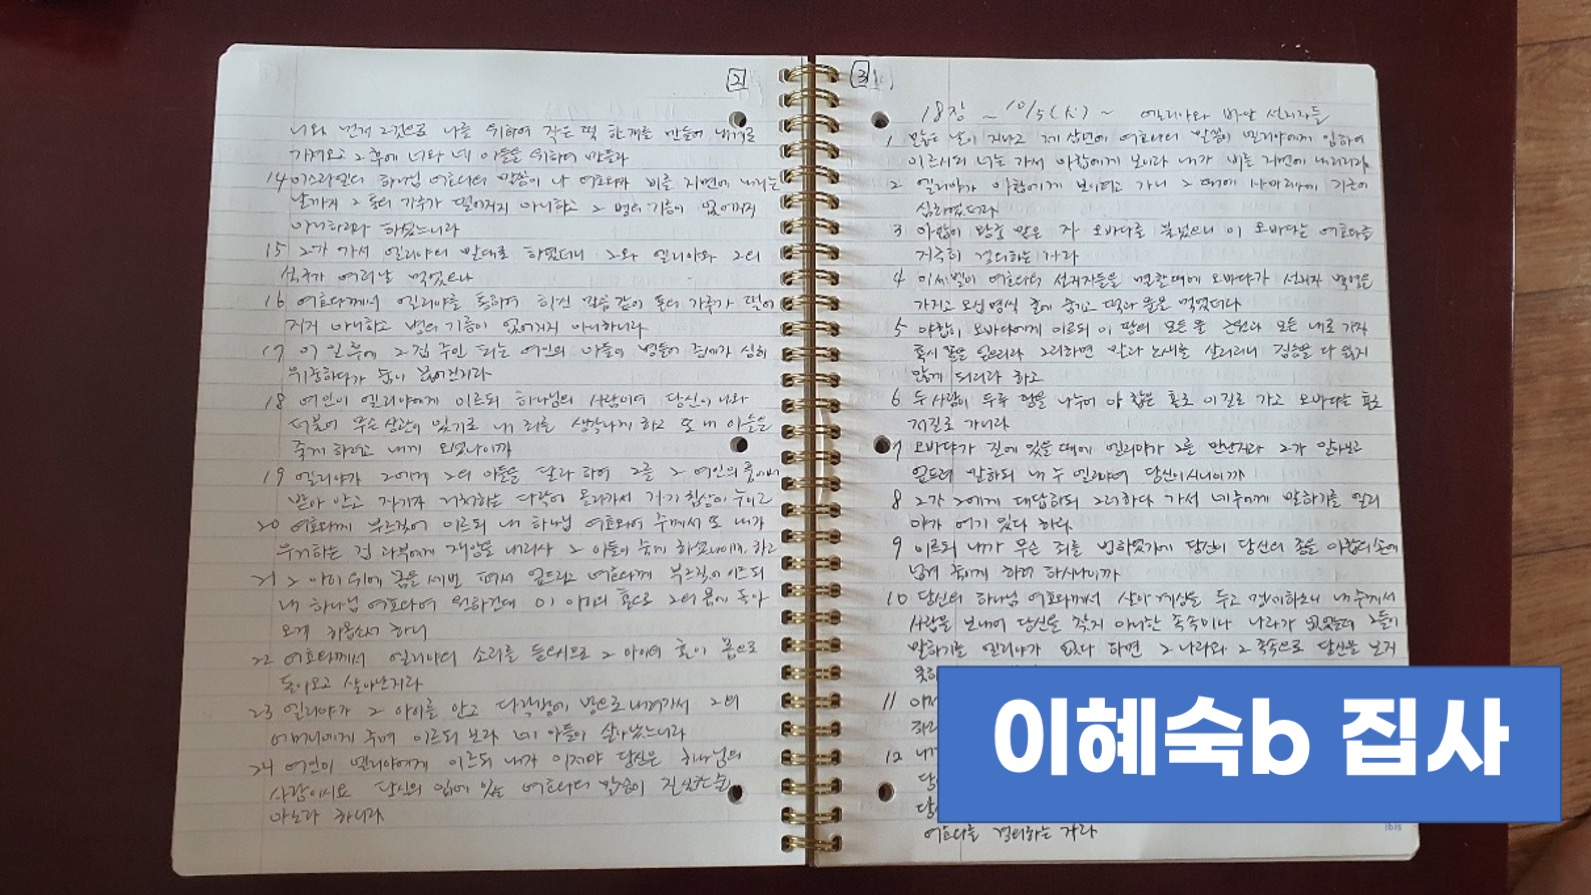 2
너와 먼저 그것으로 나를 위하여 작은 떡 한개를 만들어 내게로
가져오고 그 후에 너와 네 아들을 위하여 만들라
14 이스라엘의 하나님 여호와의 말씀이 나 여호와가 비를 지면에 내리는
날까지 그 통의 가루가 떨어지지 아니하고 그 병의 기름이 없어지지
아니하리라 하셨느니라
15 그가 가서 엘리야의 말대로 하였더니 그와 엘리야와 그의
식구가 여러날 먹었으나
16 여호와께서 엘리야를 통하여 하신 말씀 같이 통의 가루가 떨어
지지 아니하고 병의 기름이 없어지지 아니하니라
17 이 일 후에 그 집 주인 되는 여인의 아들이 병들어 증세가 심히
위중하다가 숨이 끊어진지라
18 여인이 엘리야에게 이르되 하나님의 사람이여 당신이 나와
더불어 무슨 상관이 있기로 내 죄를 생각나게 하고 또 내 아들을
죽게 하려고 내게 오셨나이까
19 엘리야가 그에게 그의 아들을 달라 하여 그를 그 여인의 품에서
받아 안고 자기가 거처하는 다락에 올라가서 자기 침상에 누이고
20 여호와께 부르짖어 이르되 내 하나님 여호와여 주께서 또 내가
우거하는 집 과부에게 재앙을 내리사 그 아들이 죽게 하셨나이까 하고
21 그 아이 위에 몸을 세번 펴서 엎드리고 여호와께 부르짖어 이르되
내 하나님 여호와여 원하건대 이 아이의 혼으로 그의 몸에 돌아
오게 하옵소서 하니
22 여호와께서 엘리야의 소리를 들으시므로 그 아이의 혼이 몸으로
돌아오고 살아난지라
23 엘리야가 그 아이를 안고 다락에서 방으로 내려가서 그의
어머니에게 주며 이르되 보라 네 아들이 살아났느니라
24 여인이 엘리야에게 이르되 내가 이제야 당신은 하나님의
사람이시요 당신의 입에 있는 여호와의 말씀이 진실한 줄
아노라 하니라
3
18장 ~ 10/5(시) ~ 엘리야와 바알 선지자들
1 많은 날이 지나고 제 삼년에 여호와의 말씀이 엘리야에게 임하여
이르시되 너는 가서 아합에게 보이라 내가 비를 지면에 내리리라
2 엘리야가 아합에게 보이려고 가니 그 때에 사마리아에 기근이
심하였더라
3 아합이 왕궁 맡은 자 오바댜를 불렀으니 이 오바댜는 여호와를
지극히 경외하는 자라
4 이세벨이 여호와의 선지자들을 멸할 때에 오바댜가 선지자 백명을
가지고 오십명씩 굴에 숨기고 떡과 물을 먹였더라
5 아합이 오바댜에게 이르되 이 땅의 모든 물 근원과 모든 내로 가자
혹시 꼴을 얻으리라 그리하면 말과 노새를 살리리니 짐승을 다 잃지
않게 되리라 하고
6 두 사람이 두루 땅을 나누어 아합은 홀로 이 길로 가고 오바댜는 홀로
저 길로 가니라
7 오바댜가 길에 있을 때에 엘리야가 그를 만난지라 그가 알아보고
엎드려 말하되 내 주 엘리야여 당신이시니이까
8 그가 그에게 대답하되 그러하다 가서 네 주에게 말하기를 엘리
야가 여기 있다 하라
9 이르되 내가 무슨 죄를 범하였기에 당신이 당신의 종을 아합의 손에
넘겨 죽이게 하려 하시나이까
10 당신의 하나님 여호와께서 살아 계심을 두고 맹세하노니 내 주께서
사람을 보내어 당신을 찾지 아니한 족속이나 나라가 없었는데 그들이
말하기를 엘리야가 없다 하면 그 나라와 그 족속으로 당신을 보지
못하
11
12
여호와를 경외하는 자라
이혜숙b 집사